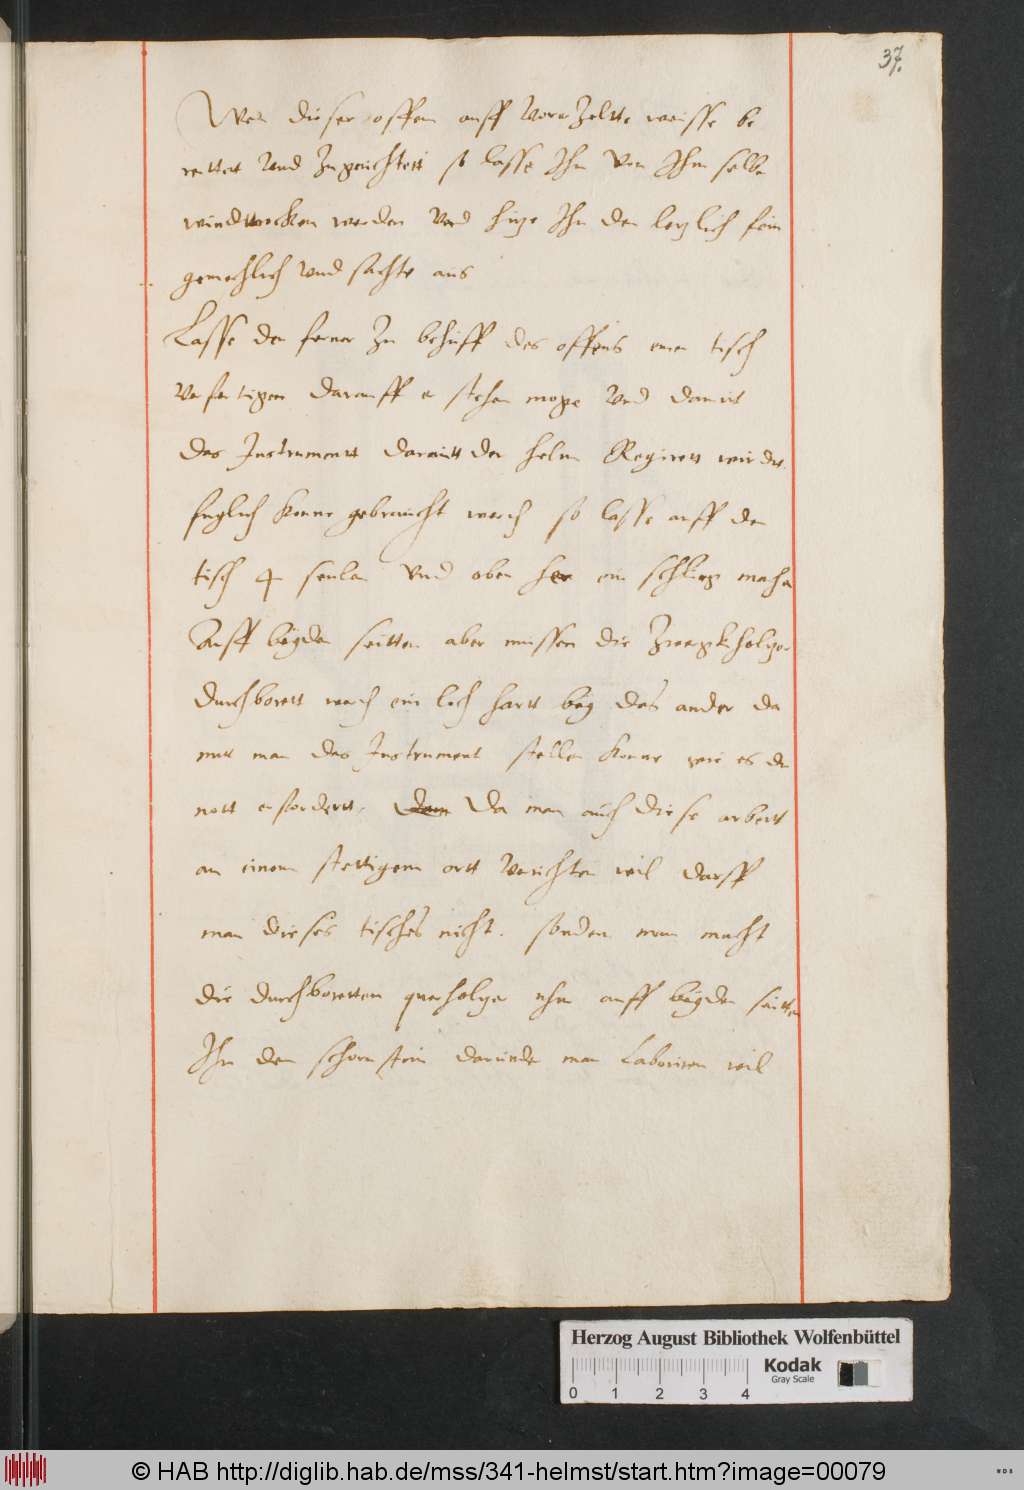 37.
Wen dieser offen auff vorerzeltte weisse be
reittet vnd zugerichtett so lasse Ihn von Ihm selbe
windtrocken werden vnd hize Ihn den lezlich fein
gemechlich vnd sachte aus
Lasse den ferner zu behuff des offens einen tisch
verfertigen darauff er stehen moge vnd damit
das Instrumentt damitt der helm Regirett wirdt
fuglich konne gebraucht werden so lasse auff den
tisch 4 seulen vnd oben her ein schlies machen
Auff beyden seitten aber mussen die holzer
durchborett werden ein loch hartt bey das ander da
mitt man das Instrument stellen konne wie es die
nott erfordertt. Da man auch diese arbeitt
an einem stettigem ortt verrichten wil darff
man dieses tisches nicht. sonden man macht
die durchboretten querholzer nhur auff beyden seitten
Ihn den schornstein darunder man Laboriren wil
Herzog August Bibliothek Wolfenbüttel
Kodak
Gray Scale
0 1 2 3 4
© HAB http://diglib.hab.de/mss/341-helmst/start.htm?image=00079